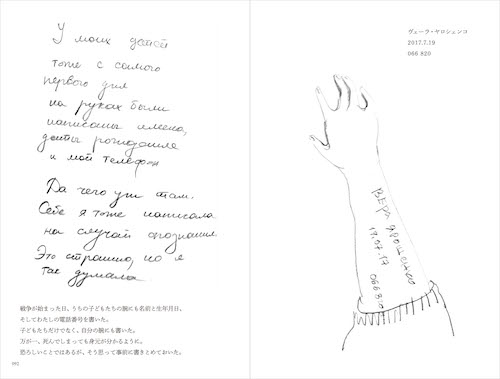 У моих детей
тоже с самого
первого дня
на руках были
написаны имена,
даты рождения
и мой телефон
Да чего уж там.
Себе я тоже написала
на случай опознания
Это страшно, но я
так думала
戦争が始まった日。うちの子どもたちの腕にも名前と生年月日。
そしてわたしの電話番号を書いた。
子どもたちだけでなく、自分の腕にも書いた。
万が一、死んでしまっても身元が分かるように。
恐ろしいことではあるが、そう思って事前に書きとめておいた。
ヴェーラ・ヤロシェンコ
2017.7.19
066 820
Вера Ярошенко
19.07.17
066 820